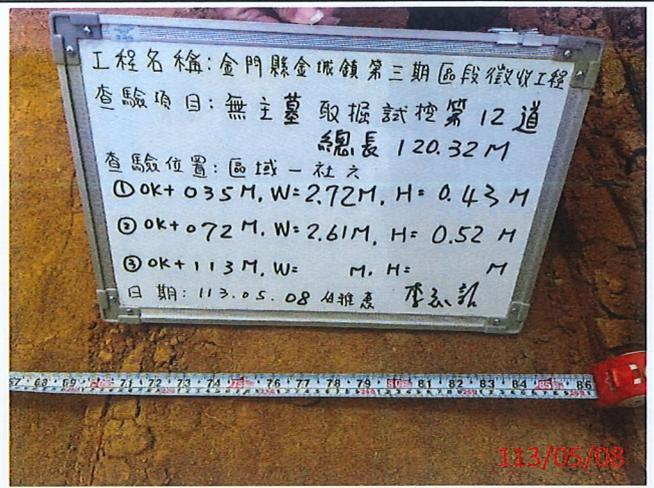 工程名稱:金門縣金城鎮第三期區段徵收工程
查驗項目:無主墓取掘試挖第12道
總長120.32M
查驗位置:區域一社六
①0K+035M, W=2.72M, H=0.43M
②0K+072M, W=2.61M, H=0.52M
③0K+113M, W= M, H= M
日期:113.05.08
67 68 69 70 71 72 73 74 75 76 77 78 79 80 81 82 83 84 85 86
113/05/08